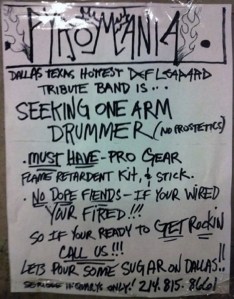 PYROMANIA
DALLAS TEXAS HOTTEST DEF LEPPARD
TRIBUTE BAND IS...
SEEKING ONE ARM
DRUMMER (NO PROSTETICS)
• MUST HAVE - PRO GEAR
FLAME RETARDENT KIT, & STICK.
• NO DOPE FIENDS - IF YOUR WIRED
YOUR FIRED!!!
SO IF YOUR READY TO GET ROCKIN
CALL US!!!
LETS POUR SOME SUGAR ON DALLAS!!
SERIOUS INQUIRYS ONLY! 214.815.8660